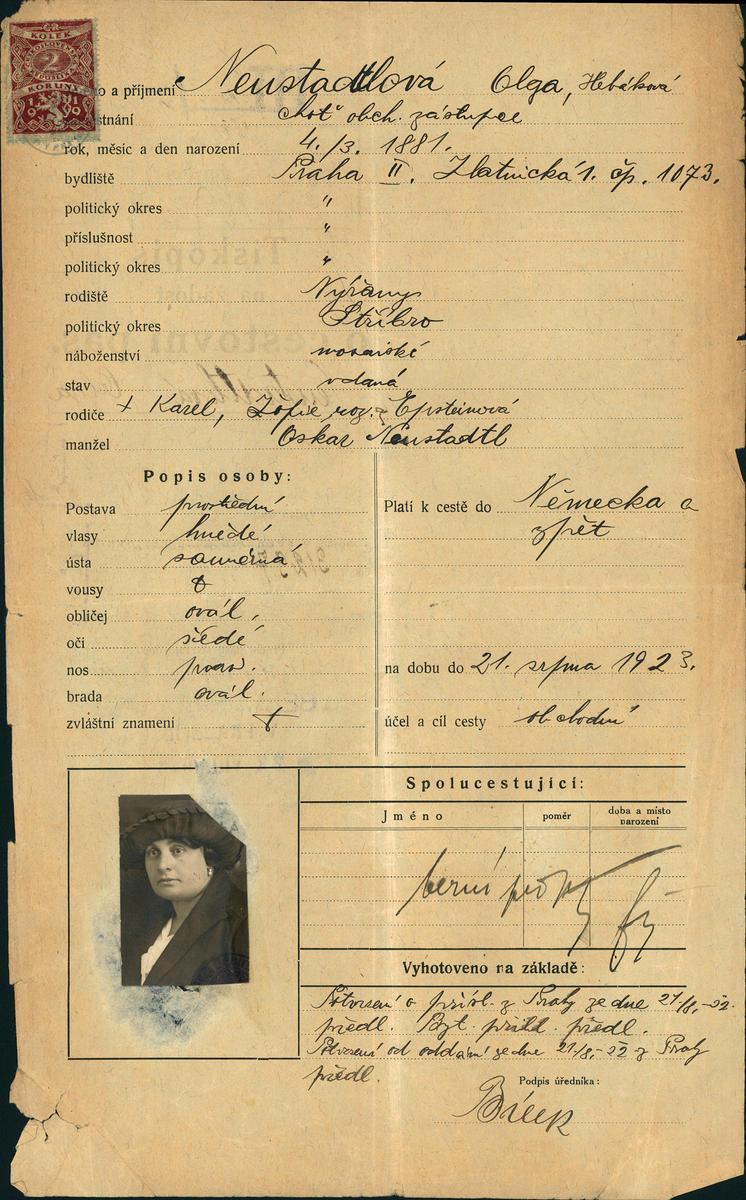 KOLEK
2
KORUNY
1919
o a příjmení Neustadtlová Olga, Hebáková
stnání choť obch. zástupce
rok, měsíc a den narození 4./3. 1881.
bydliště Praha II. Zlatnická 1. čp. 1073.
politický okres "
příslušnost "
politický okres "
rodiště Nýřany
politický okres Stříbro
náboženství mosaiské
stav vdaná
rodiče + Karel, Žofie roz. Epsteinová
manžel Oskar Neustadtl
Popis osoby:
Postava prostřední
vlasy hnědé
ústa souměrná
vousy
obličej ovál.
oči šedé
nos prav.
brada ovál.
zvláštní znamení
Platí k cestě do Německa a
zpět
na dobu do 21. srpna 1923.
účel a cíl cesty obchodní
Spolucestující:
Jméno poměr doba a místo
narození
berní
Vyhotoveno na základě:
Potvrzení o přísl. z Prahy ze dne 21/8.-22.
předl. předl.
Potvrzení od oddání ze dne 21/8.-22 z Prahy
předl.
Podpis úředníka: